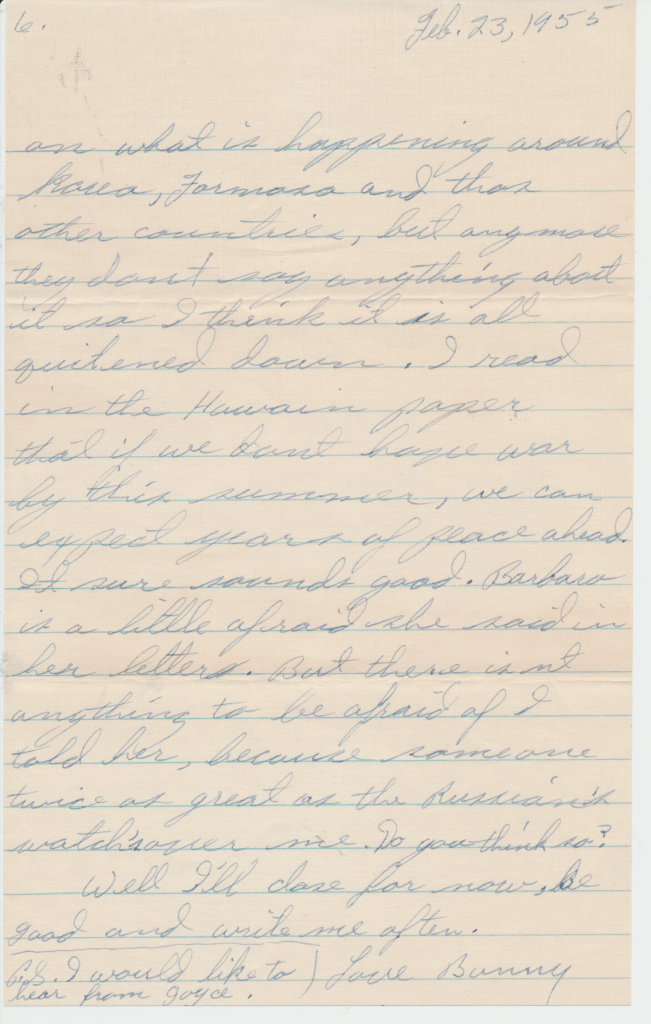 6.
Feb. 23, 1955
on what is happening around
Korea, Formosa and thos
other countries, but anymore
they don't say anything about
it so I think it is all
quitened down. I read
in the Hawain paper
that if we dont have war
by this summer, we can
expect years of peace ahead.
It sure sounds good. Barbara
is a little afraid she said in
her letters. But there isnt
anything to be afraid of I
told her, because someone
twice as great as the Russian's
watch'sover me. Do you think so?
Well I'll close for now, be
good and write me often.
P.S. I would like to ) Love Bunny
hear from Joyce.